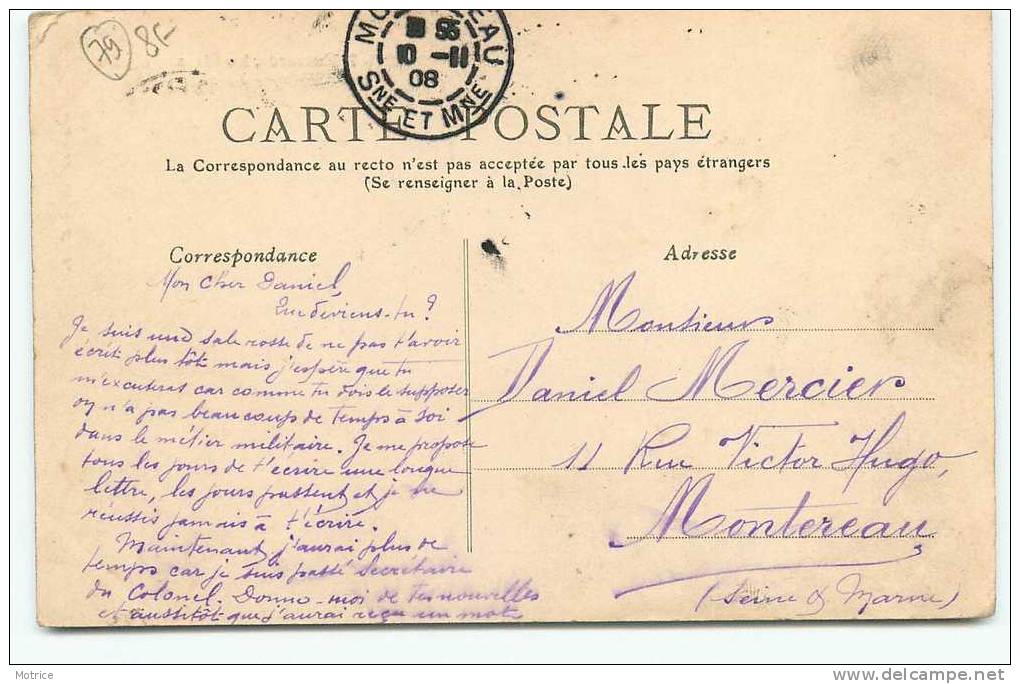 79
8F
MO EAU
18 55
10 -11
08
SNE ET MNE
CARTE POSTALE
La Correspondance au recto n'est pas acceptée par tous les pays étrangers
(Se renseigner à la Poste)
Correspondance
Mon Cher Daniel,
Que deviens-tu?
Je suis une sale rosse de ne pas t'avoir
écrit plus tôt mais j'espère que tu
m'excuseras car comme tu dois le supposer
on n'a pas beaucoup de temps à soi
dans le métier militaire. Je me propose
tous les jours de t'écrire une longue
lettre, les jours passent et je ne
réussis jamais à t'écrire.
Maintenant j'aurai plus de
temps car je suis passé Secrétaire
du Colonel. Donne-moi de tes nouvelles
et aussitôt que j'aurai reçu un mot
Adresse
Monsieur
Daniel Mercier
11 Rue Victor Hugo,
Montereau
(Seine & Marne)
Motrice
www.delcampe.net